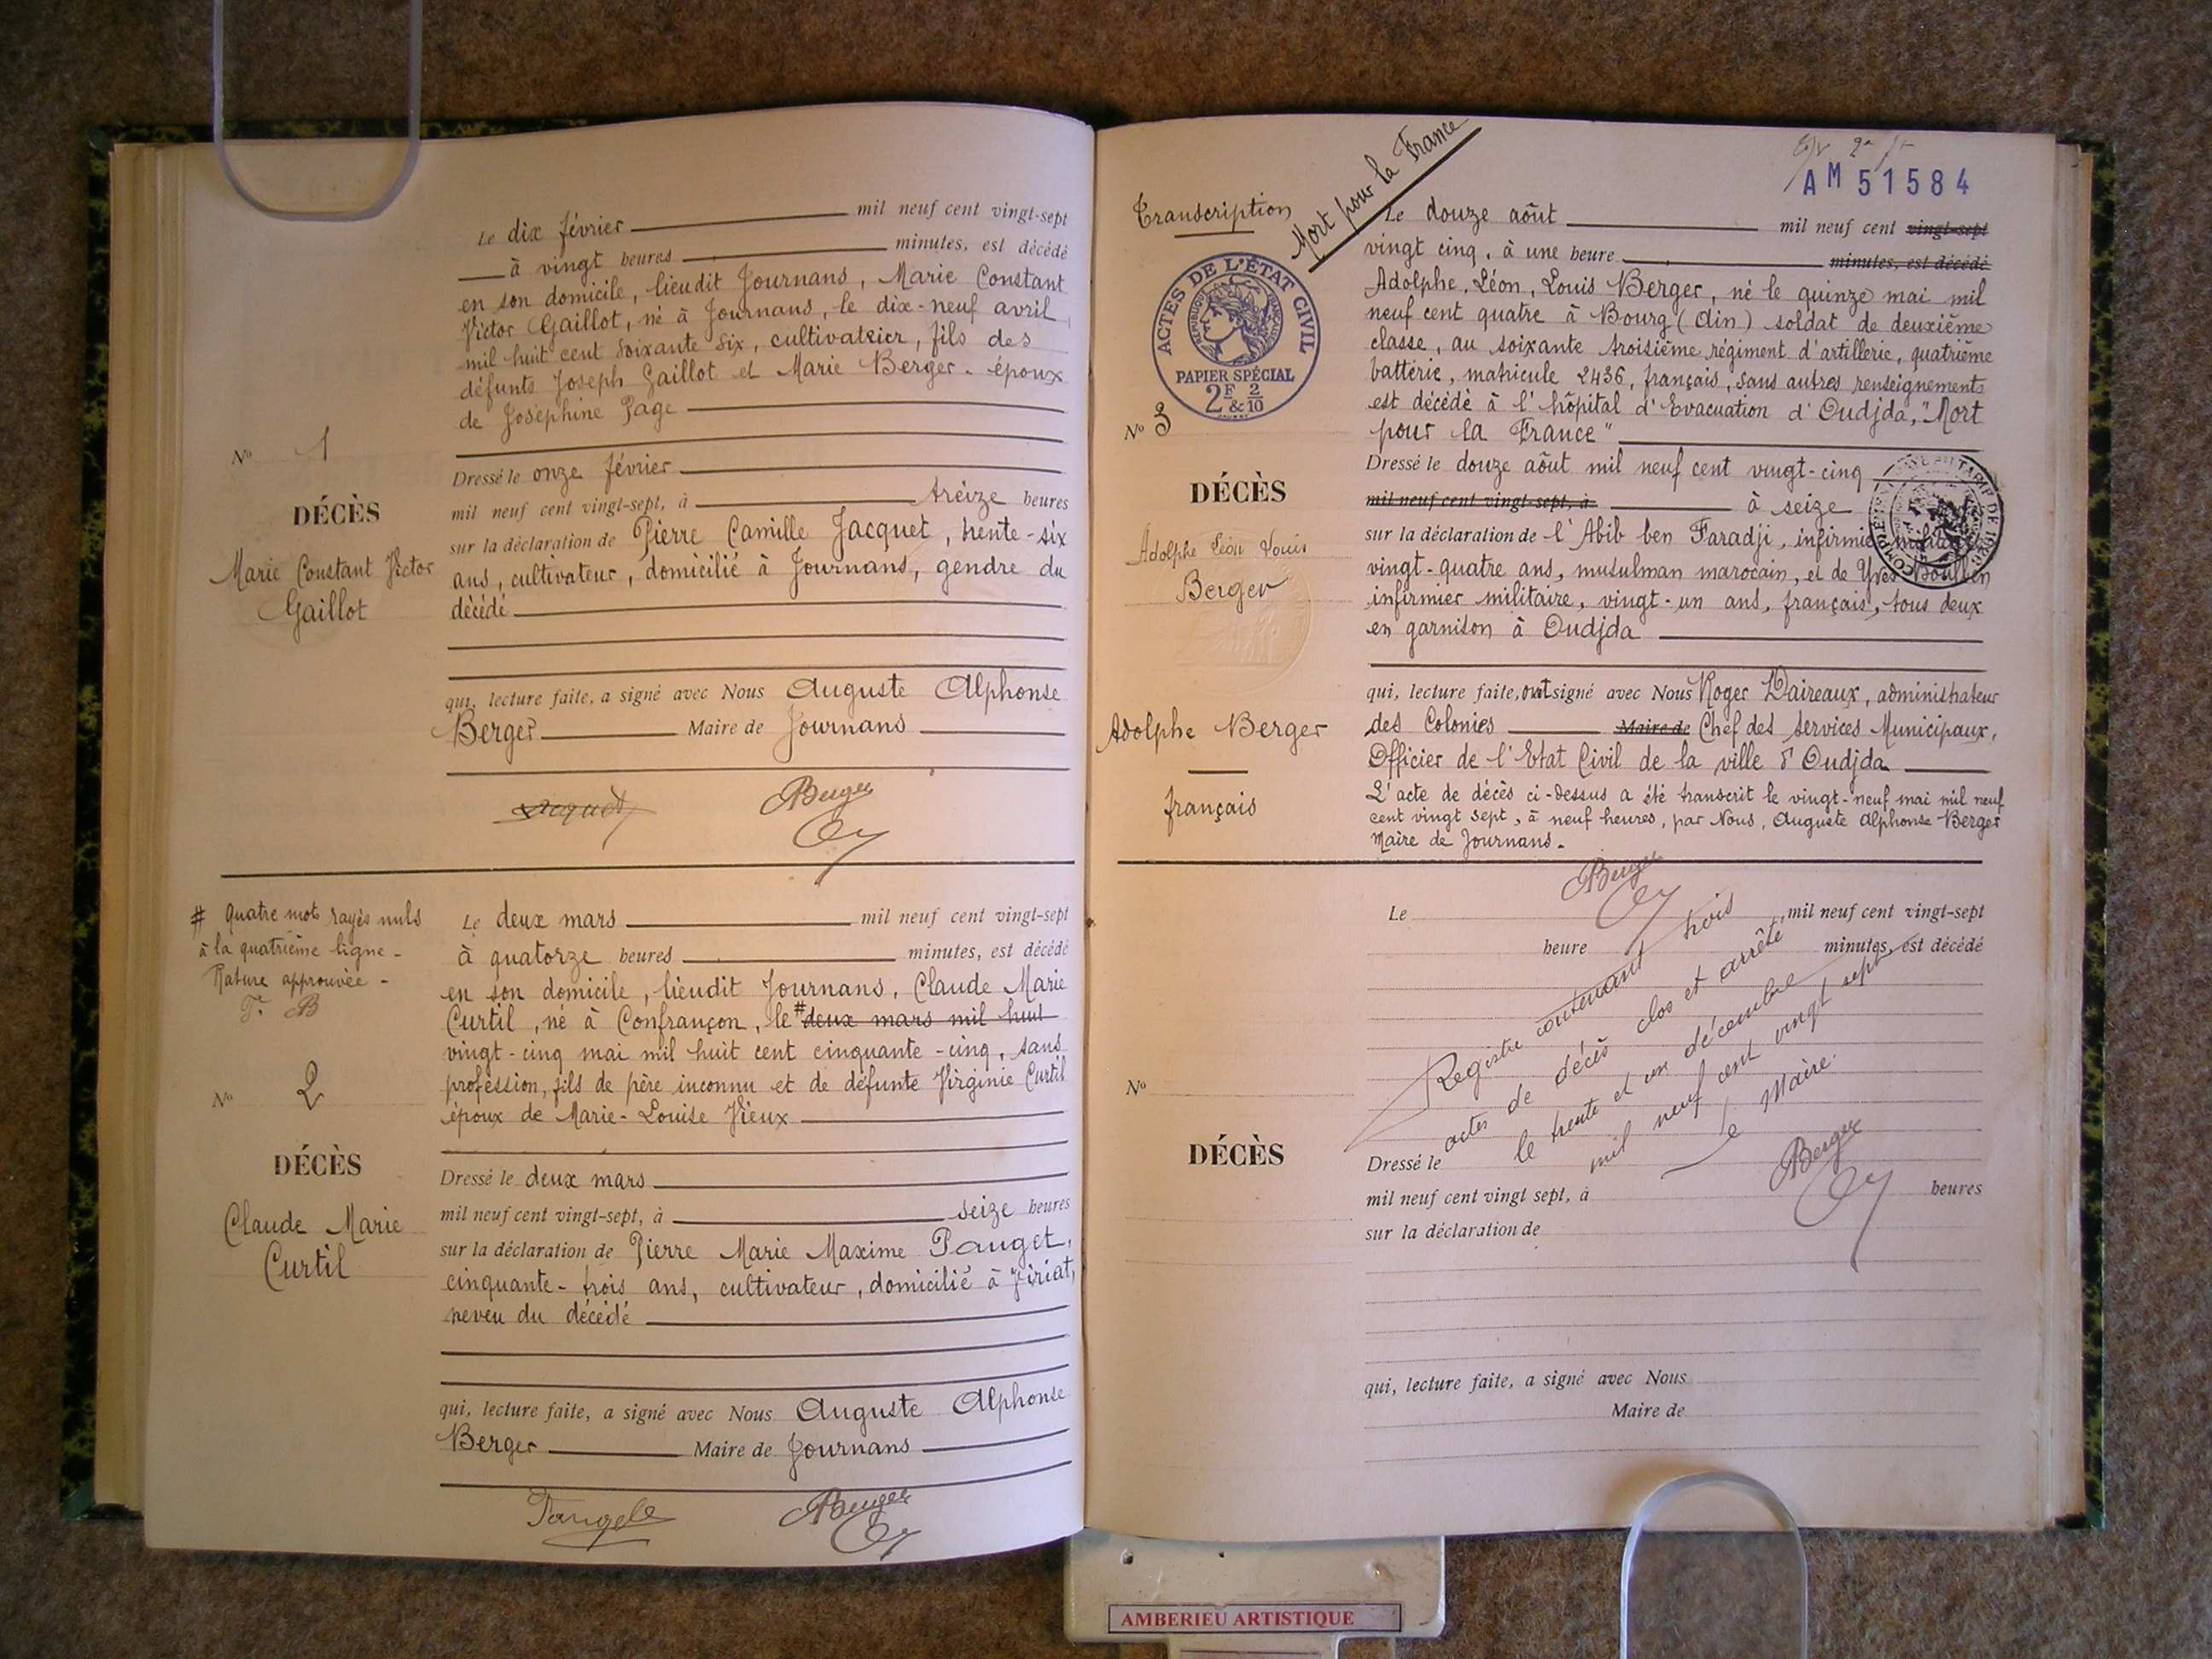 Le dix février mil neuf cent vingt-sept
à vingt heures minutes, est décédé
en son domicile, lieudit Journans, Marie Constant
Victor Gaillot, né à Journans, le dix-neuf avril
mil huit cent soixante six, cultivateur, fils des
défunts Joseph Gaillot et Marie Berger. époux
de Joséphine Page
Nº 1
DÉCÈS
Marie Constant Victor
Gaillot
Dressé le onze février
mil neuf cent vingt-sept, à treize heures
sur la déclaration de Pierre Camille Jacquet, trente-six
ans, cultivateur, domicilié à Journans, gendre du
décédé
qui, lecture faite, a signé avec Nous Auguste Alphonse
Berger Maire de Journans
Jacquet Berger
# quatre mots rayés nuls
à la quatrième ligne -
Rature approuvée -
B
Nº 2
DÉCÈS
Claude Marie
Curtil
Le deux mars mil neuf cent vingt-sept
à quatorze heures minutes, est décédé
en son domicile, lieudit Journans, Claude Marie
Curtil, né à Confrançon, le # deux mars mil huit
vingt-cinq mai mil huit cent cinquante-cinq, sans
profession, fils de père inconnu et de défunte Virginie Curtil
époux de Marie-Louise Vieux
Dressé le deux mars
mil neuf cent vingt-sept, à seize heures
sur la déclaration de Pierre Marie Maxime Pauget,
cinquante-trois ans, cultivateur, domicilié à Viriat,
neveu du décédé
qui, lecture faite, a signé avec Nous Auguste Alphonse
Berger Maire de Journans
Berger
AM 51584
Transcription
Mort pour la France
ACTES DE L'ÉTAT CIVIL
RÉPUBLIQUE FRANÇAISE
PAPIER SPÉCIAL
2F & 2/10
Nº 3
DÉCÈS
Adolphe Léon Louis
Berger
Adolphe Berger
français
Le douze août mil neuf cent vingt-sept
vingt cinq, à une heure minutes, est décédé
Adolphe, Léon, Louis Berger, né le quinze mai mil
neuf cent quatre à Bourg (Ain) soldat de deuxième
classe, au soixante troisième régiment d'artillerie, quatrième
battérie, matricule 2436, français, sans autres renseignements
est décédé à l'hôpital d'Evacuation d'Oudjda, "Mort
pour la France"
Dressé le douze août mil neuf cent vingt-cinq
mil neuf cent vingt-sept, à à seize
sur la déclaration de l'Abib ben Faradji, infirmier militaire
vingt-quatre ans, musulman marocain, et de Yves Boullen
infirmier militaire, vingt-un ans, français, tous deux
en garnison à Oudjda
qui, lecture faite, ont signé avec Nous Roger Daireaux, administrateur
des Colonies Maire de Chef des services Municipaux,
Officier de l'Etat Civil de la ville d'Oudjda
L'acte de décès ci-dessus a été transcrit le vingt-neuf mai mil neuf
cent vingt sept, à neuf heures, par Nous, Auguste Alphonse Berger
Maire de Journans.
Berger
Le mil neuf cent vingt-sept
heure minutes, est décédé
Registre contenant trois
actes de décès clos et arrêté
le trente et un décembre
mil neuf cent vingt sept
Le Maire.
Berger
Nº
DÉCÈS
Dressé le
mil neuf cent vingt sept, à heures
sur la déclaration de
qui, lecture faite, a signé avec Nous
Maire de
AMBERIEU ARTISTIQUE